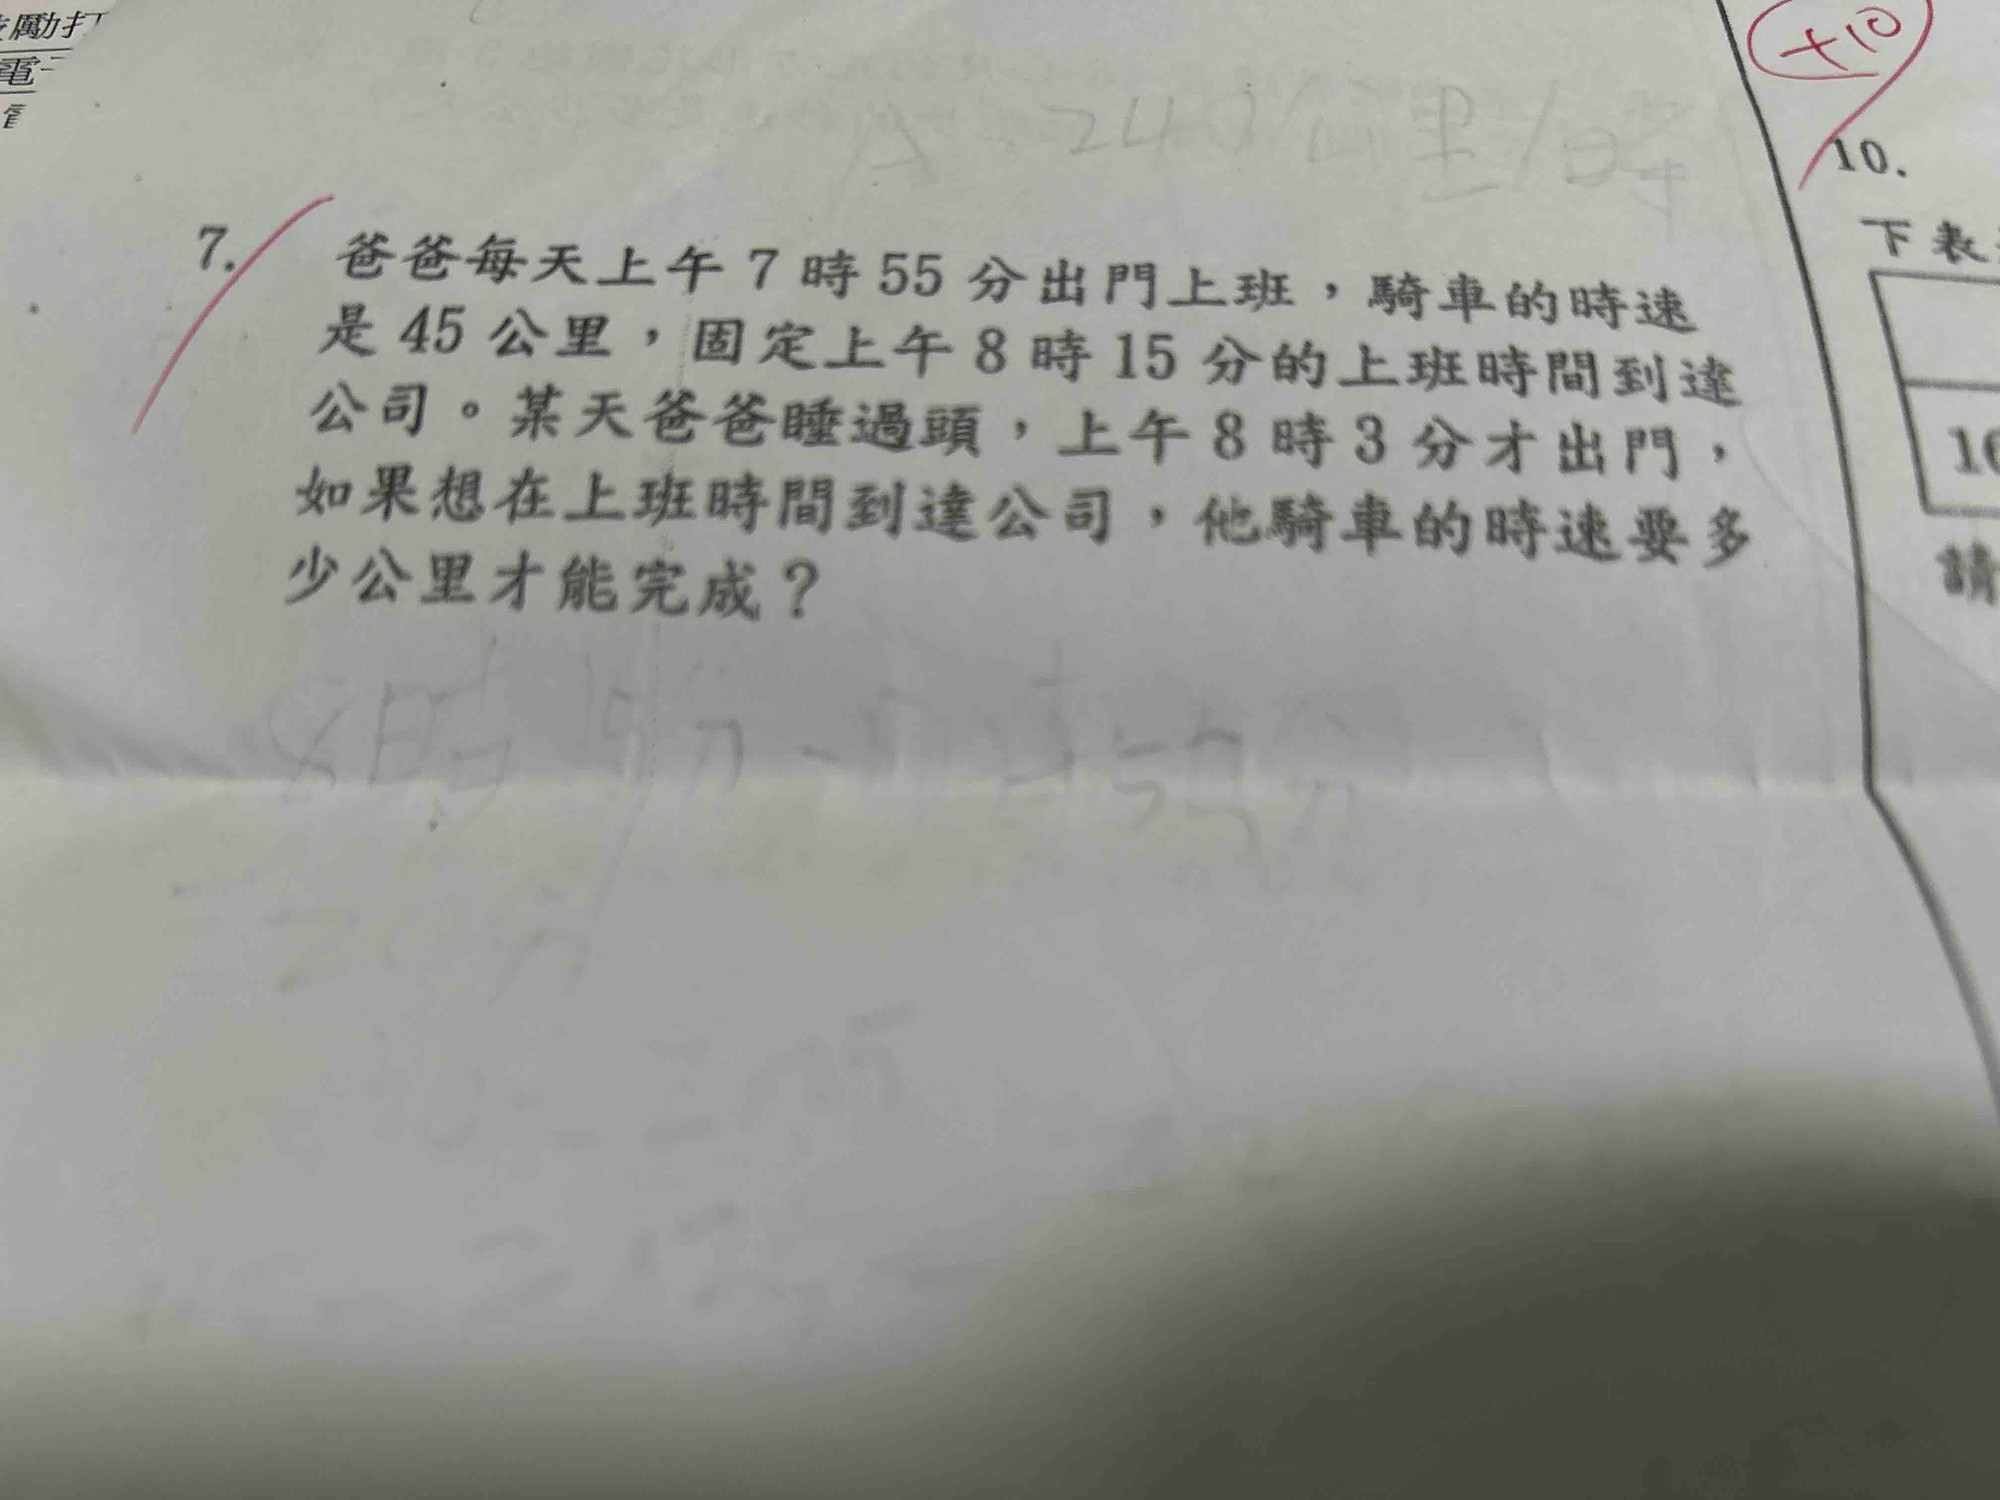 勵打
電子
A 240公里/時
+10
7. 爸爸每天上午 7 時 55 分出門上班，騎車的時速
是 45 公里，固定上午 8 時 15 分的上班時間到達
公司。某天爸爸睡過頭，上午 8 時 3 分才出門，
如果想在上班時間到達公司，他騎車的時速要多
少公里才能完成？
8時15分-7時55分
=20分
10.
下表
16
請